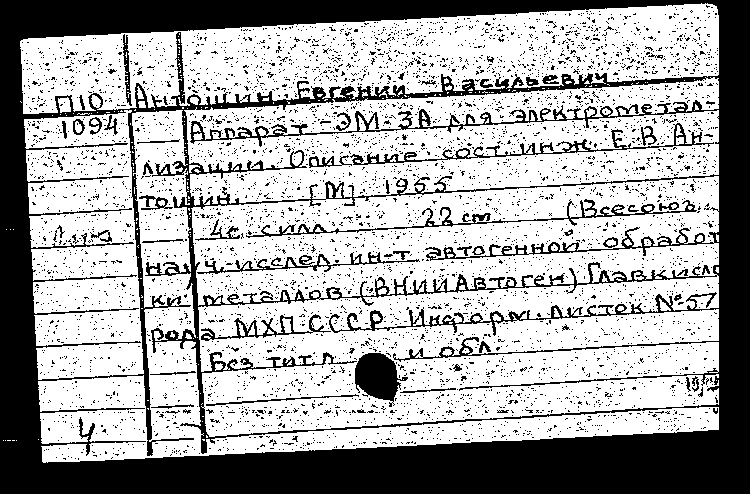 П10 Антошин, Евгений Васильевич
1094 Аппарат ЭМ-3А для электрометал-
лизации. Описание сост. инж. Е.В. Ан-
тошин. [М], 1955
4с. с илл. 22 cm (Всесоюз.
науч.-исслед. ин-т автогенной обработ
ки металлов (ВНИИАвтоген) Главкисло
рода МХП СССР. Информ. листок №57
Без тит. л. и обл.
4